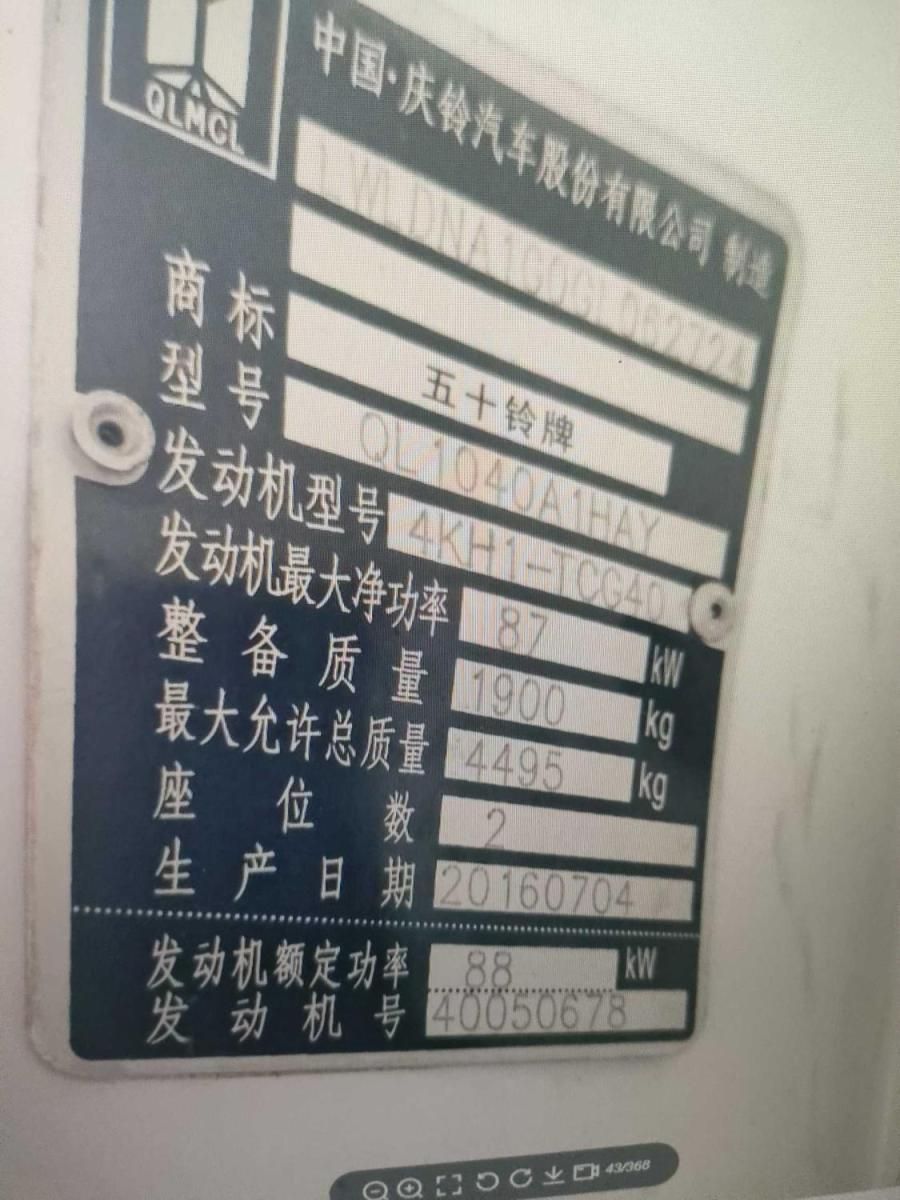 QLMCL
中国·庆铃汽车股份有限公司 制造
LWLDNA1C0GL062724
商标 五十铃牌
型号 QL1040A1HAY
发动机型号 4KH1-TCG40
发动机最大净功率 87 kW
整备质量 1900 kg
最大允许总质量 4495 kg
座位数 2
生产日期 20160704
发动机额定功率 88 kW
发动机号 40050678
43/368